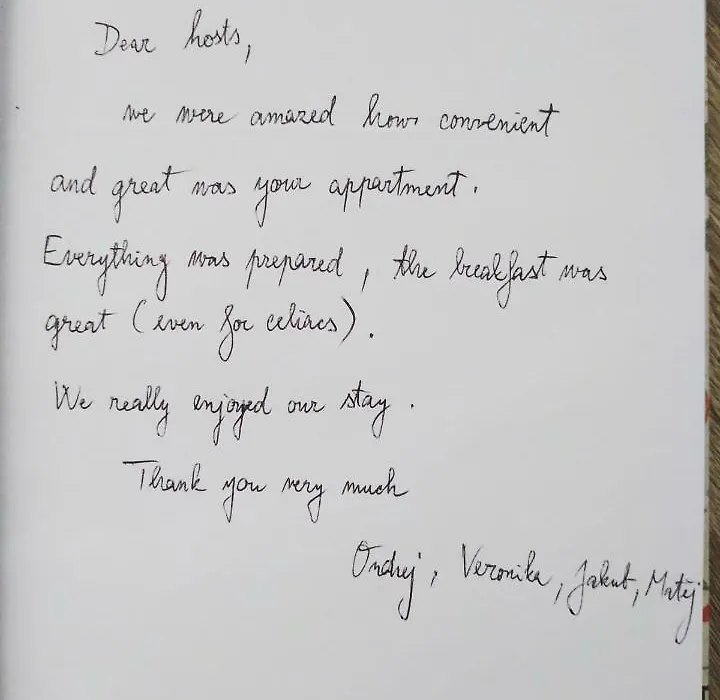 Dear hosts,
we were amazed how convenient
and great was your appartment.
Everything was prepared, the breakfast was
great (even for celiacs).
We really enjoyed our stay.
Thank you very much
Ondrej, Veronika, Jakub, Matěj